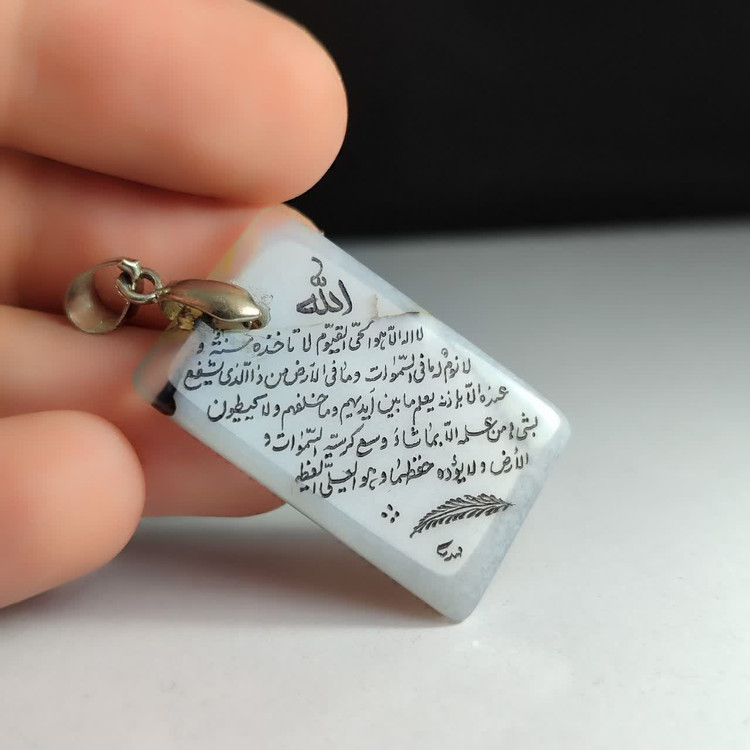 الله
لا اله الا هوالحيّ القيّوم لا تاخذه سنةٌ و
لا نومٌ له ما فی السّموات وما فی الارض من ذاالذی یشفع
عنده الّا باذنه یعلم ما بین ایدیهم وما خلفهم ولا یحیطون
بشیء من علمه الّا بماشاءَ وسع کرسیه السّموات و
الأرض ولا یؤده حفظهما وهو العلیّ العظیم